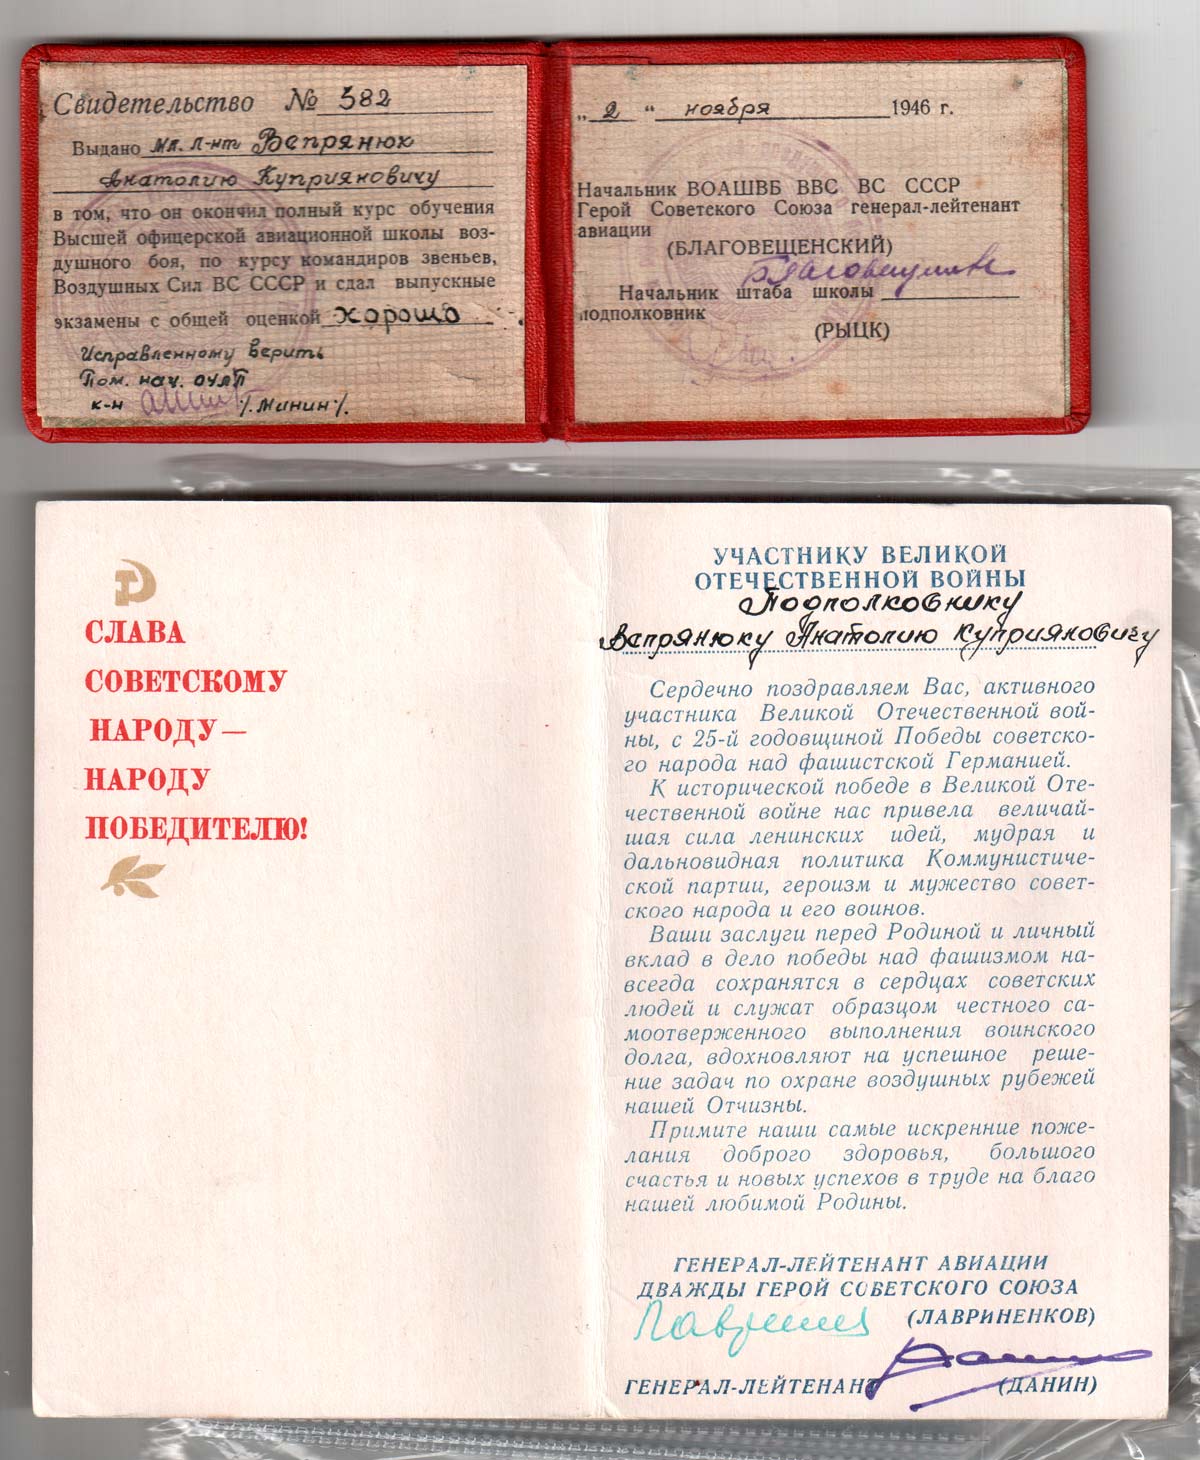 Свидетельство № 382
Выдано мл. л-нт Вапрянюк
Анатолию Куприяновичу
в том, что он окончил полный курс обучения
Высшей офицерской авиационной школы воз-
душного боя, по курсу командиров звеньев,
Воздушных Сил ВС СССР и сдал выпускные
экзамены с общей оценкой хорошо
Исправленному верить
Пом. нач. ОУЛП
к-н /Минин/.
„ 2 “ ноября 1946 г.
Начальник ВОАШВБ ВВС ВС СССР
Герой Советского Союза генерал-лейтенант
авиации
(БЛАГОВЕЩЕНСКИЙ)
Начальник штаба школы
подполковник
(РЫЦК)
СЛАВА
СОВЕТСКОМУ
НАРОДУ —
НАРОДУ
ПОБЕДИТЕЛЮ!
УЧАСТНИКУ ВЕЛИКОЙ
ОТЕЧЕСТВЕННОЙ ВОЙНЫ
Подполковнику
Вапрянюку Анатолию Куприяновичу
Сердечно поздравляем Вас, активного
участника Великой Отечественной вой-
ны, с 25-й годовщиной Победы советско-
го народа над фашистской Германией.
К исторической победе в Великой Оте-
чественной войне нас привела величай-
шая сила ленинских идей, мудрая и
дальновидная политика Коммунистиче-
ской партии, героизм и мужество совет-
ского народа и его воинов.
Ваши заслуги перед Родиной и личный
вклад в дело победы над фашизмом на-
всегда сохранятся в сердцах советских
людей и служат образцом честного са-
моотверженного выполнения воинского
долга, вдохновляют на успешное реше-
ние задач по охране воздушных рубежей
нашей Отчизны.
Примите наши самые искренние поже-
лания доброго здоровья, большого
счастья и новых успехов в труде на благо
нашей любимой Родины.
ГЕНЕРАЛ-ЛЕЙТЕНАНТ АВИАЦИИ
ДВАЖДЫ ГЕРОЙ СОВЕТСКОГО СОЮЗА
(ЛАВРИНЕНКОВ)
ГЕНЕРАЛ-ЛЕЙТЕНАНТ (ДАНИН)